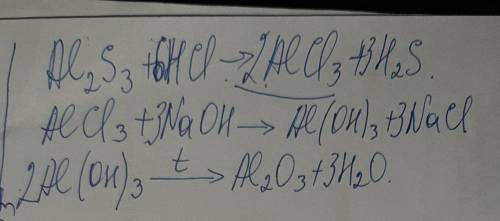 Al₂S₃ + 6HCl → 2AlCl₃ + 3H₂S.
AlCl₃ + 3NaOH → Al(OH)₃ + 3NaCl
2Al(OH)₃ t→ Al₂O₃ + 3H₂O.